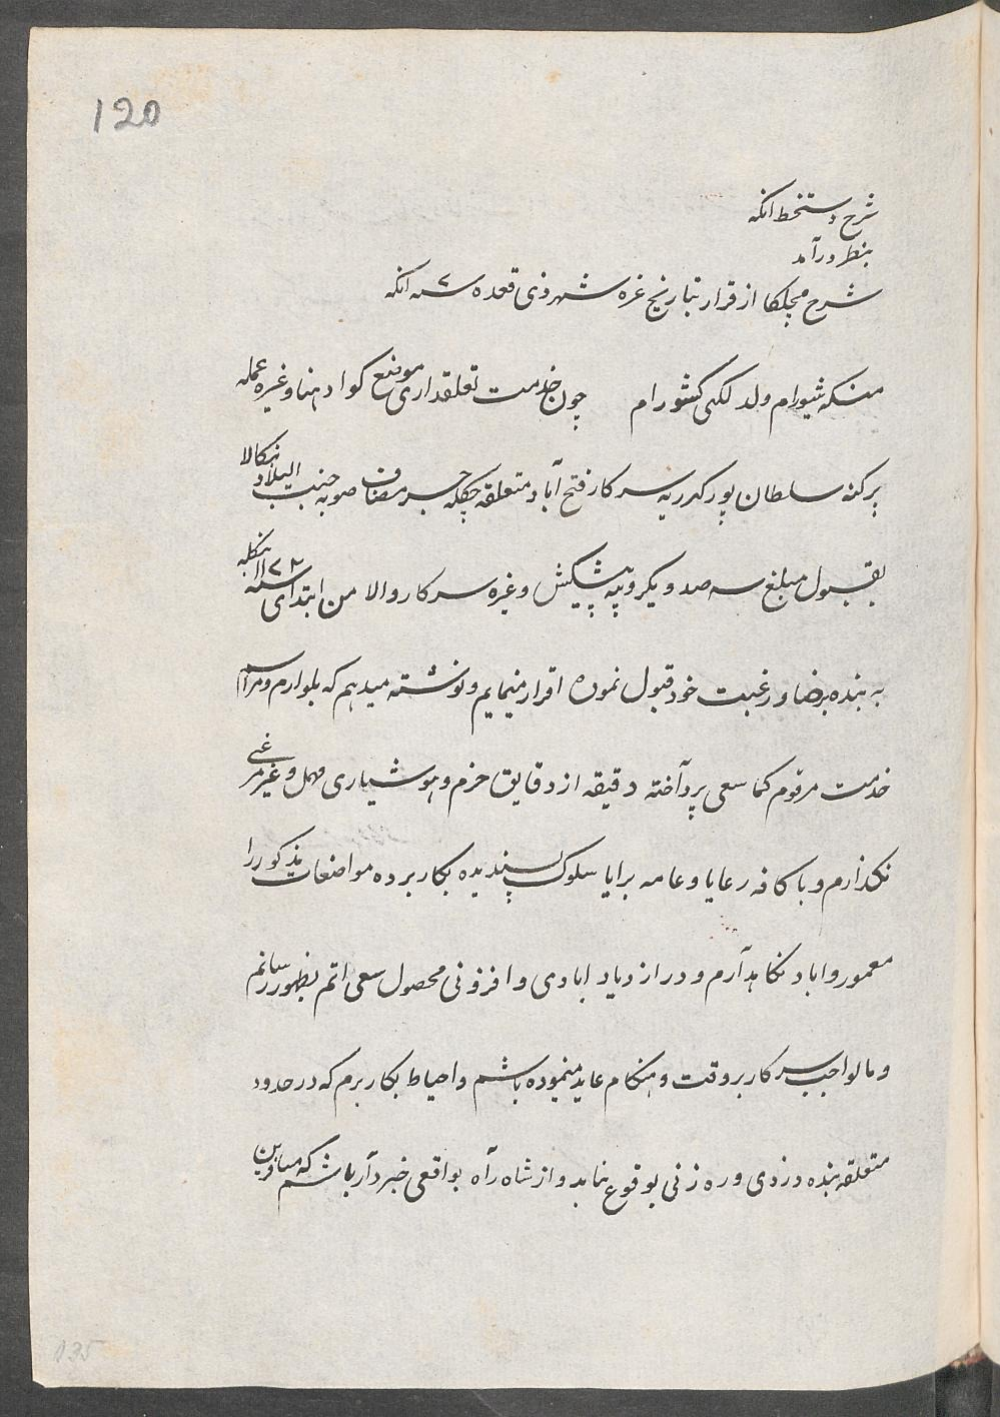 120
شرح دستخط انکه
بنظر درآمد
شرح مچلکا از قرار بتاریخ غره شهر ذی قعده سنه ۷ انکه
منکه شیورام ولد لکهی کشورام چون خدمت تعلقداری موضع کوادهنا وغیره عمله
پرکنه سلطان پور سرکار فتح آباد متعلقه چکله جسر مضاف صوبه جنت البلاد بنکالا
بقبول مبلغ سه صد و یکروپیه پیشکیش وغیره سرکار والا من ابتدای سنه بنکله
به بنده برضا و رغبت خود قبول نموده اقرار مینمایم و نوشته میدهم که بلوازم و مراسم
خدمت مرقوم کما سعی پرداخته دقیقه از دقایق حزم و هوشیاری مهمل و غیر مرعی
نکذارم و با کافه رعایا و عامه برایا سلوک پسندیده بکار برده مواضعات مذکور را
معمور و اباد نکاهدآرم و در ازدیاد ابادی و افزونی محصول سعی اتم بظهور رسانم
و مالواجب سرکار بروقت و هنکام عاید مینموده باشم و احیاط بکار برم که در حدود
متعلقه بنده دزدی و ره زنی بوقوع نیاید و از شاه رآه بواقعی خبردآر باشم که مسافرین
135